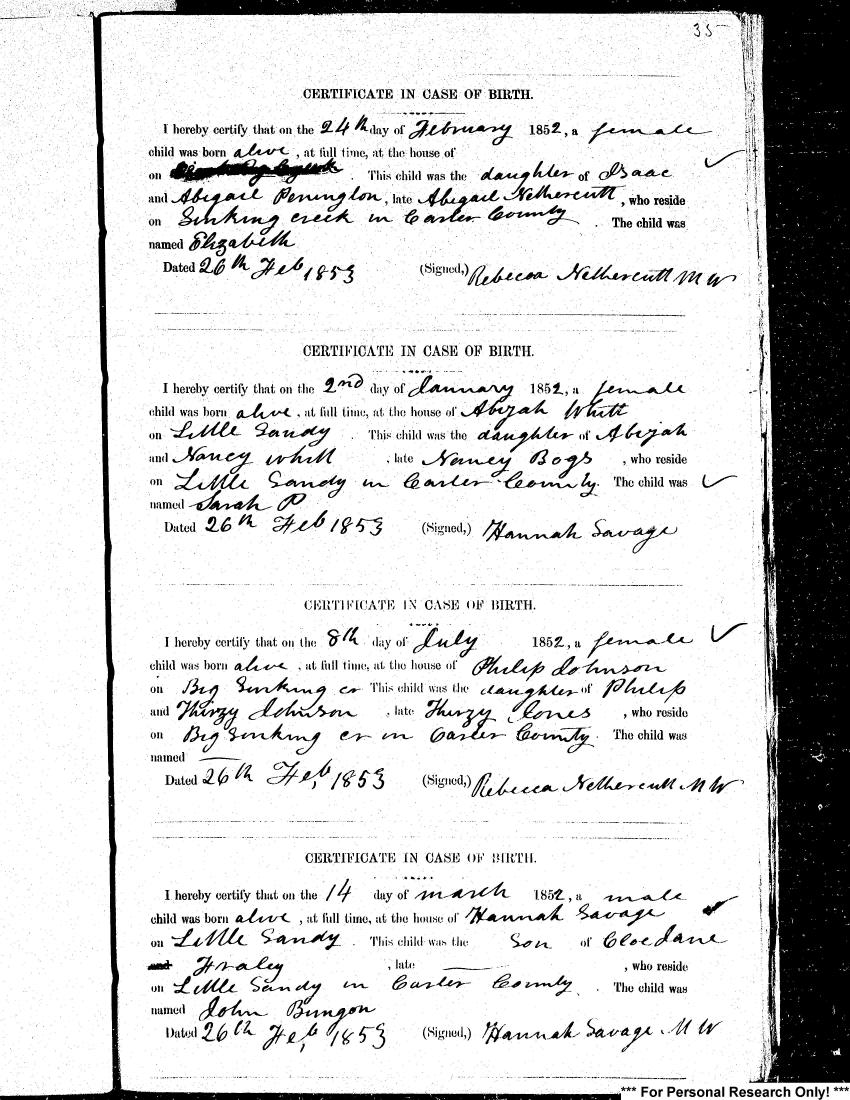 35
CERTIFICATE IN CASE OF BIRTH.
I hereby certify that on the 24th day of February 1852, a female
child was born alive, at full time, at the house of
on . This child was the daughter of Isaac
and Abigail Penington, late Abigail Nethercutt, who reside
on Sinking creek in Carter County. The child was
named Elizabeth
Dated 26th Feb 1853 (Signed,) Rebecca Nethercutt M W
CERTIFICATE IN CASE OF BIRTH.
I hereby certify that on the 2nd day of January 1852, a female
child was born alive, at full time, at the house of Abijah Whitt
on Little Sandy. This child was the daughter of Abijah
and Nancy Whitt, late Nancy Bogs, who reside
on Little Sandy in Carter County. The child was
named Sarah P
Dated 26th Feb 1853 (Signed,) Hannah Savage
CERTIFICATE IN CASE OF BIRTH.
I hereby certify that on the 8th day of July 1852, a female
child was born alive, at full time, at the house of Philip Johnson
on Big Sinking cr This child was the daughter of Philip
and Thirzy Johnson, late Thirzy Jones, who reside
on Big Sinking cr in Carter County. The child was
named —
Dated 26th Feb, 1853 (Signed,) Rebecca Nethercutt M W
CERTIFICATE IN CASE OF BIRTH.
I hereby certify that on the 14 day of march 1852, a male
child was born alive, at full time, at the house of Hannah Savage
on Little Sandy. This child was the Son of Cloe Jane
and Fraley, late —, who reside
on Little Sandy in Carter County. The child was
named John Bungon
Dated 26th Feb, 1853 (Signed,) Hannah Savage M W
*** For Personal Research Only! ***